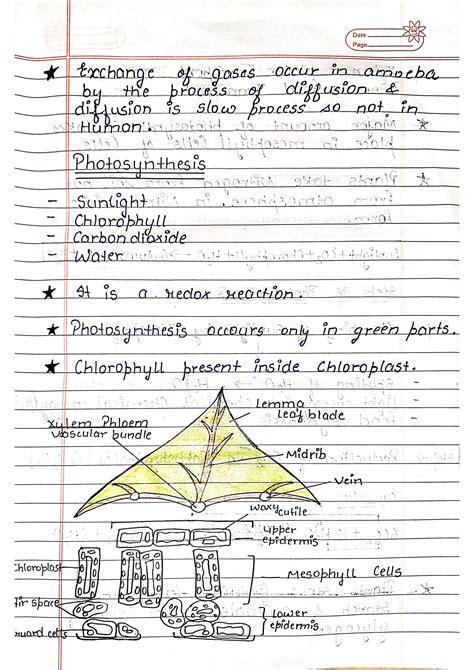 Date
Page
★ Exchange of gases occur in amoeba
by the process of diffusion &
diffusion is slow process so not in
Human.
Photosynthesis
- Sunlight
- Chlorophyll
- Carbon dioxide
- Water
★ It is a redox reaction.
★ Photosynthesis occours only in green parts.
★ Chlorophyll present inside Chloroplast.
Lemma
leaf blade
Xylem Phloem
Vascular bundle
Midrib
Vein
waxy
cutile
upper
epidermis
Chloroplast
Mesophyll Cells
Air space
Lower
epidermis
guard cells